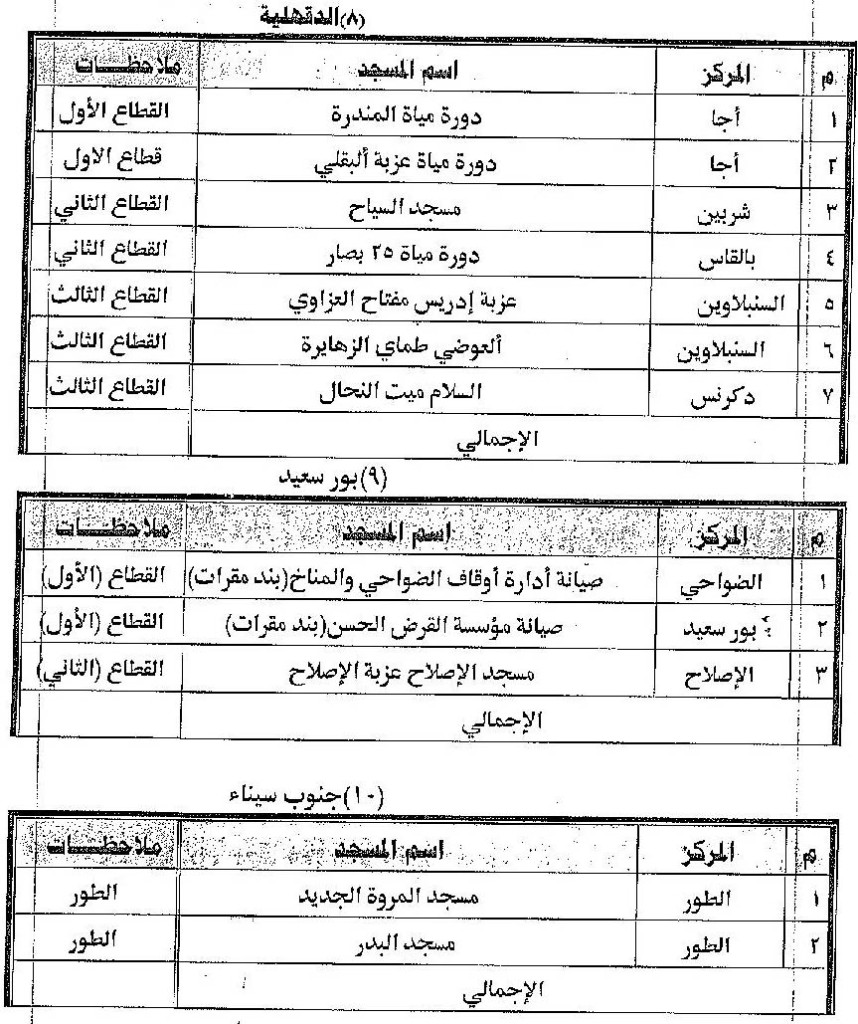 (٨)الدقهلية
م المركز اسم المسجد ملاحظات
١ أجا دورة مياة المندرة القطاع الأول
٢ أجا دورة مياة عزبة ألبقلي قطاع الاول
٣ شربين مسجد السياح القطاع الثاني
٤ بالقاس دورة مياة ٢٥ بصار القطاع الثاني
٥ السنبلاوين عزبة إدريس مفتاح العزاوي القطاع الثالث
٦ السنبلاوين ألعوضي طماي الزهايرة القطاع الثالث
٧ دكرنس السلام ميت النحال القطاع الثالث
الإجمالي
(٩)بور سعيد
م المركز اسم المسجد ملاحظات
١ الضواحي صيانة أدارة أوقاف الضواحي والمناخ(بند مقرات) القطاع (الأول)
٢ بور سعيد صيانة مؤسسة القرض الحسن(بند مقرات) القطاع (الأول)
٣ الإصلاح مسجد الإصلاح عزبة الإصلاح القطاع (الثاني)
الإجمالي
(١٠)جنوب سيناء
م المركز اسم المسجد ملاحظات
١ الطور مسجد المروة الجديد الطور
٢ الطور مسجد البدر الطور
الإجمالي